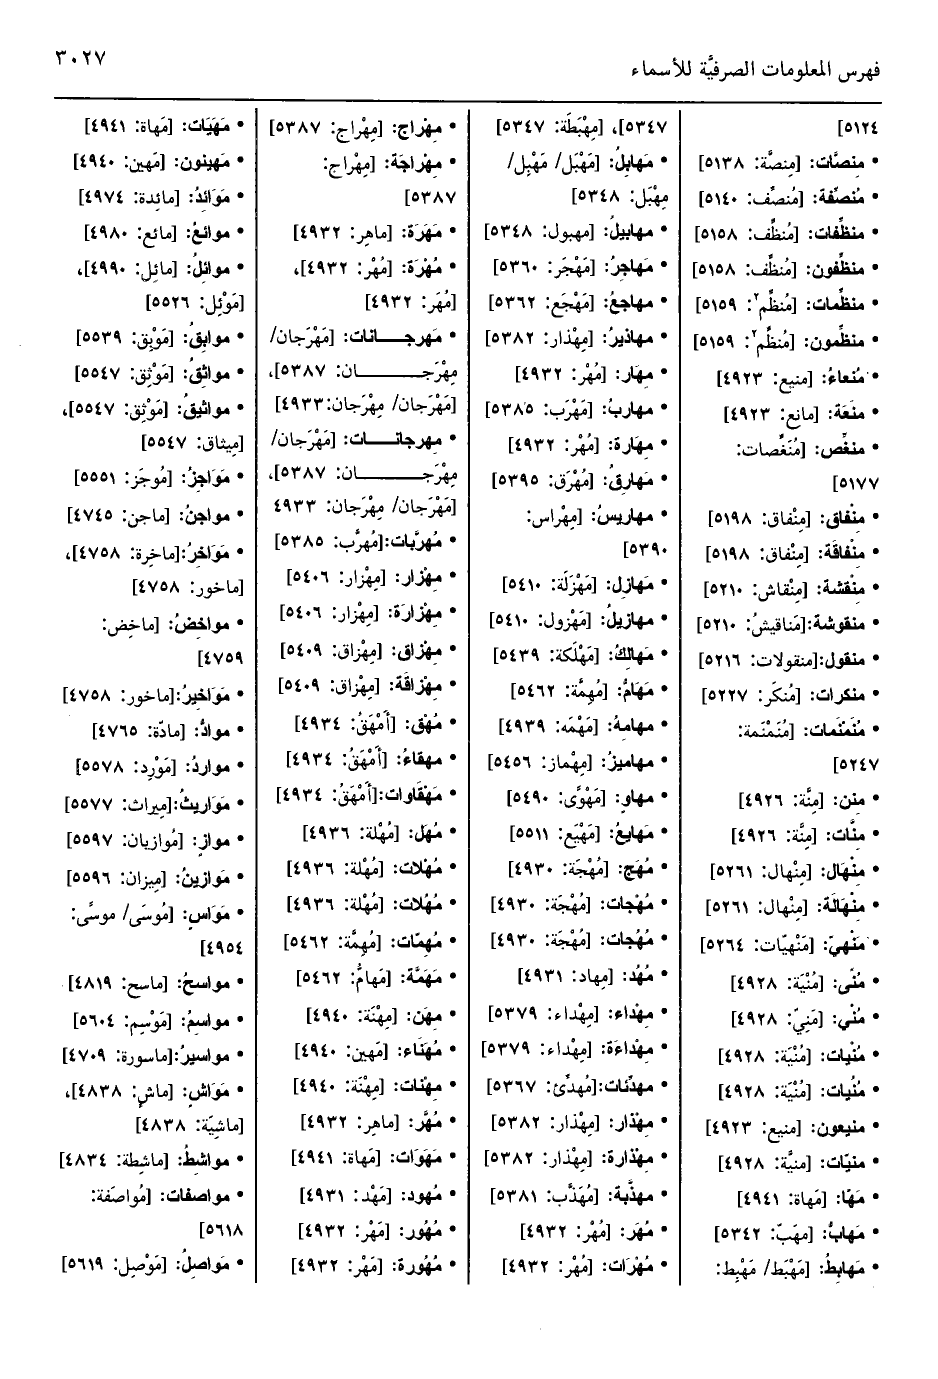 فهرس المعلومات الصرفيَّة للأسماء
٣٠٢٧
٥١٢٤]
• منصَّات: [مِنصَّة: ٥١٣٨]
• مُنصِّفة: [مُنصِّف: ٥١٤٠]
• منظِّفات: [مُنظِّف: ٥١٥٨]
• منظِّفون: [مُنظِّف: ٥١٥٨]
• منظِّمات: [مُنظِّم٢: ٥١٥٩]
• منظِّمون: [مُنظِّم٢: ٥١٥٩]
• مُنعاءُ: [منيع: ٤٩٢٣]
• مَنَعَة: [مانع: ٤٩٢٣]
• منغِّص: [مُنَغِّصات:
٥١٧٧]
• مِنْفاق: [مِنْفاق: ٥١٩٨]
• مِنْفاقَة: [مِنْفاق: ٥١٩٨]
• مِنْقشة: [مِنْقاش: ٥٢١٠]
• منقوشة:[مَناقيشُ: ٥٢١٠]
• منقول:[منقولات: ٥٢١٦]
• منكرات: [مُنكَر: ٥٢٢٧]
• مُنَمْنَمات: [مُنَمْنَمة:
٥٢٤٧]
• مِنَن: [مِنَّة: ٤٩٢٦]
• مِنَّات: [مِنَّة: ٤٩٢٦]
• مِنْهال: [مِنْهال: ٥٢٦١]
• مِنْهالَة: [مِنْهال: ٥٢٦١]
• مَنْهيّ: [مَنْهيّات: ٥٢٦٤]
• مُنًى: [مُنْيَة: ٤٩٢٨]
• مُنْي: [مَنِيّ: ٤٩٢٨]
• مُنْيات: [مُنْيَة: ٤٩٢٨]
• مُنُيات: [مُنْيَة: ٤٩٢٨]
• منيعون: [منيع: ٤٩٢٣]
• منيّات: [منيَّة: ٤٩٢٨]
• مَهًا: [مَهاة: ٤٩٤١]
• مَهابُّ: [مهَبّ: ٥٣٤٢]
• مَهابِطُ: [مَهْبَط/ مَهْبِط:
٥٣٤٧]، [مِهْبَطَة: ٥٣٤٧]
• مَهابِلُ: [مَهْبَل/ مَهْبِل/
مِهْبَل: ٥٣٤٨]
• مهابيلُ: [مهبول: ٥٣٤٨]
• مَهاجِرُ: [مَهْجَر: ٥٣٦٠]
• مهاجعُ: [مَهْجَع: ٥٣٦٢]
• مهاذيرُ: [مِهْذار: ٥٣٨٢]
• مِهَار: [مُهْر: ٤٩٣٢]
• مهاربُ: [مَهْرَب: ٥٣٨٥]
• مِهارة: [مُهْر: ٤٩٣٢]
• مهارقُ: [مُهْرَق: ٥٣٩٥]
• مهاريسُ: [مِهْراس:
٥٣٩٠]
• مَهازِل: [مَهْزَلَة: ٥٤١٠]
• مهازيلُ: [مَهْزول: ٥٤١٠]
• مَهالكُ: [مَهْلَكة: ٥٤٣٩]
• مَهَامُّ: [مُهِمَّة: ٥٤٦٢]
• مهامهُ: [مَهْمَه: ٤٩٣٩]
• مهاميزُ: [مِهْماز: ٥٤٥٦]
• مهاوٍ: [مَهْوًى: ٥٤٩٠]
• مَهايِعُ: [مَهْيَع: ٥٥١١]
• مُهَج: [مُهْجَة: ٤٩٣٠]
• مُهْجات: [مُهْجَة: ٤٩٣٠]
• مُهُجات: [مُهْجَة: ٤٩٣٠]
• مُهُد: [مِهاد: ٤٩٣١]
• مِهْداء: [مِهْداء: ٥٣٧٩]
• مِهْداءَة: [مِهْداء: ٥٣٧٩]
• مهدِّئات:[مُهدِّئ: ٥٣٦٧]
• مِهْذار: [مِهْذار: ٥٣٨٢]
• مِهْذارة: [مِهْذار: ٥٣٨٢]
• مهذَّبة: [مُهَذَّب: ٥٣٨١]
• مُهَر: [مُهْر: ٤٩٣٢]
• مُهْرات: [مُهْر: ٤٩٣٢]
• مِهْراج: [مِهْراج: ٥٣٨٧]
• مِهْراجَة: [مِهْراج:
٥٣٨٧]
• مَهَرَة: [ماهِر: ٤٩٣٢]
• مُهْرَة: [مُهْر: ٤٩٣٢]،
[مُهَر: ٤٩٣٢]
• مَهرجـــانات: [مَهْرَجان/
مِهْرَجـــــــان: ٥٣٨٧]،
[مَهْرَجان/ مِهْرَجان:٤٩٣٣]
• مِهرجانـــات: [مَهْرَجان/
مِهْرَجـــــــان: ٥٣٨٧]،
[مَهْرَجان/ مِهْرَجان: ٤٩٣٣
• مُهربَّات:[مُهرَّب: ٥٣٨٥]
• مِهْزار: [مِهْزار: ٥٤٠٦]
• مِهْزارَة: [مِهْزار: ٥٤٠٦]
• مِهْزاق: [مِهْزاق: ٥٤٠٩]
• مِهْزاقَة: [مِهْزاق: ٥٤٠٩]
• مُهْق: [أَمْهَقُ: ٤٩٣٤]
• مهقاءُ: [أَمْهَقُ: ٤٩٣٤]
• مَهْقَاوات:[أَمْهَقُ: ٤٩٣٤]
• مُهَل: [مُهْلة: ٤٩٣٦]
• مُهْلات: [مُهْلة: ٤٩٣٦]
• مُهُلات: [مُهْلة: ٤٩٣٦]
• مُهِمّات: [مُهِمَّة: ٥٤٦٢]
• مَهَمَّة: [مَهامُّ: ٥٤٦٢]
• مِهَن: [مِهْنَة: ٤٩٤٠]
• مُهَنَاء: [مَهين: ٤٩٤٠]
• مِهْنات: [مِهْنَة: ٤٩٤٠]
• مُهَّر: [ماهِر: ٤٩٣٢]
• مَهَوَات: [مَهاة: ٤٩٤١]
• مُهود: [مَهْد: ٤٩٣١]
• مُهُور: [مَهْر: ٤٩٣٢]
• مُهُورة: [مَهْر: ٤٩٣٢]
• مَهَيَات: [مَهاة: ٤٩٤١]
• مَهينون: [مَهين: ٤٩٤٠]
• مَوَائدُ: [مائدة: ٤٩٧٤]
• موائعُ: [مائع: ٤٩٨٠]
• موائلُ: [مائِل: ٤٩٩٠]،
[مَوْئِل: ٥٥٢٦]
• موابقُ: [مَوْبِق: ٥٥٣٩]
• مواثقُ: [مَوْثِق: ٥٥٤٧]
• مواثيقُ: [مَوْثِق: ٥٥٤٧]،
[ميثاق: ٥٥٤٧]
• مَوَاجزُ: [مُوجَز: ٥٥٥١]
• مواجنُ: [ماجن: ٤٧٤٥]
• مَوَاخرُ:[ماخِرة: ٤٧٥٨]،
[ماخور: ٤٧٥٨]
• مواخضُ: [ماخض:
٤٧٥٩]
• مَوَاخيرُ:[ماخور: ٤٧٥٨]
• موادُّ: [مادّة: ٤٧٦٥]
• مواردُ: [مَوْرِد: ٥٥٧٨]
• مَوَاريثُ:[ميراث: ٥٥٧٧]
• موازٍ: [مُوازيان: ٥٥٩٧]
• مَوَازينُ: [ميزان: ٥٥٩٦]
• مَوَاسٍ: [مُوسَى/ موسًى:
٤٩٥٤]
• مواسحُ: [ماسح: ٤٨١٩]
• مواسمُ: [مَوْسِم: ٥٦٠٤]
• مواسيرُ:[ماسورة: ٤٧٠٩]
• مَوَاشٍ: [ماشٍ: ٤٨٣٨]،
[ماشيَة: ٤٨٣٨]
• مواشطُ: [ماشِطة: ٤٨٣٤]
• مواصفات: [مُواصَفة:
٥٦١٨]
• مَواصلُ: [مَوْصِل: ٥٦١٩]